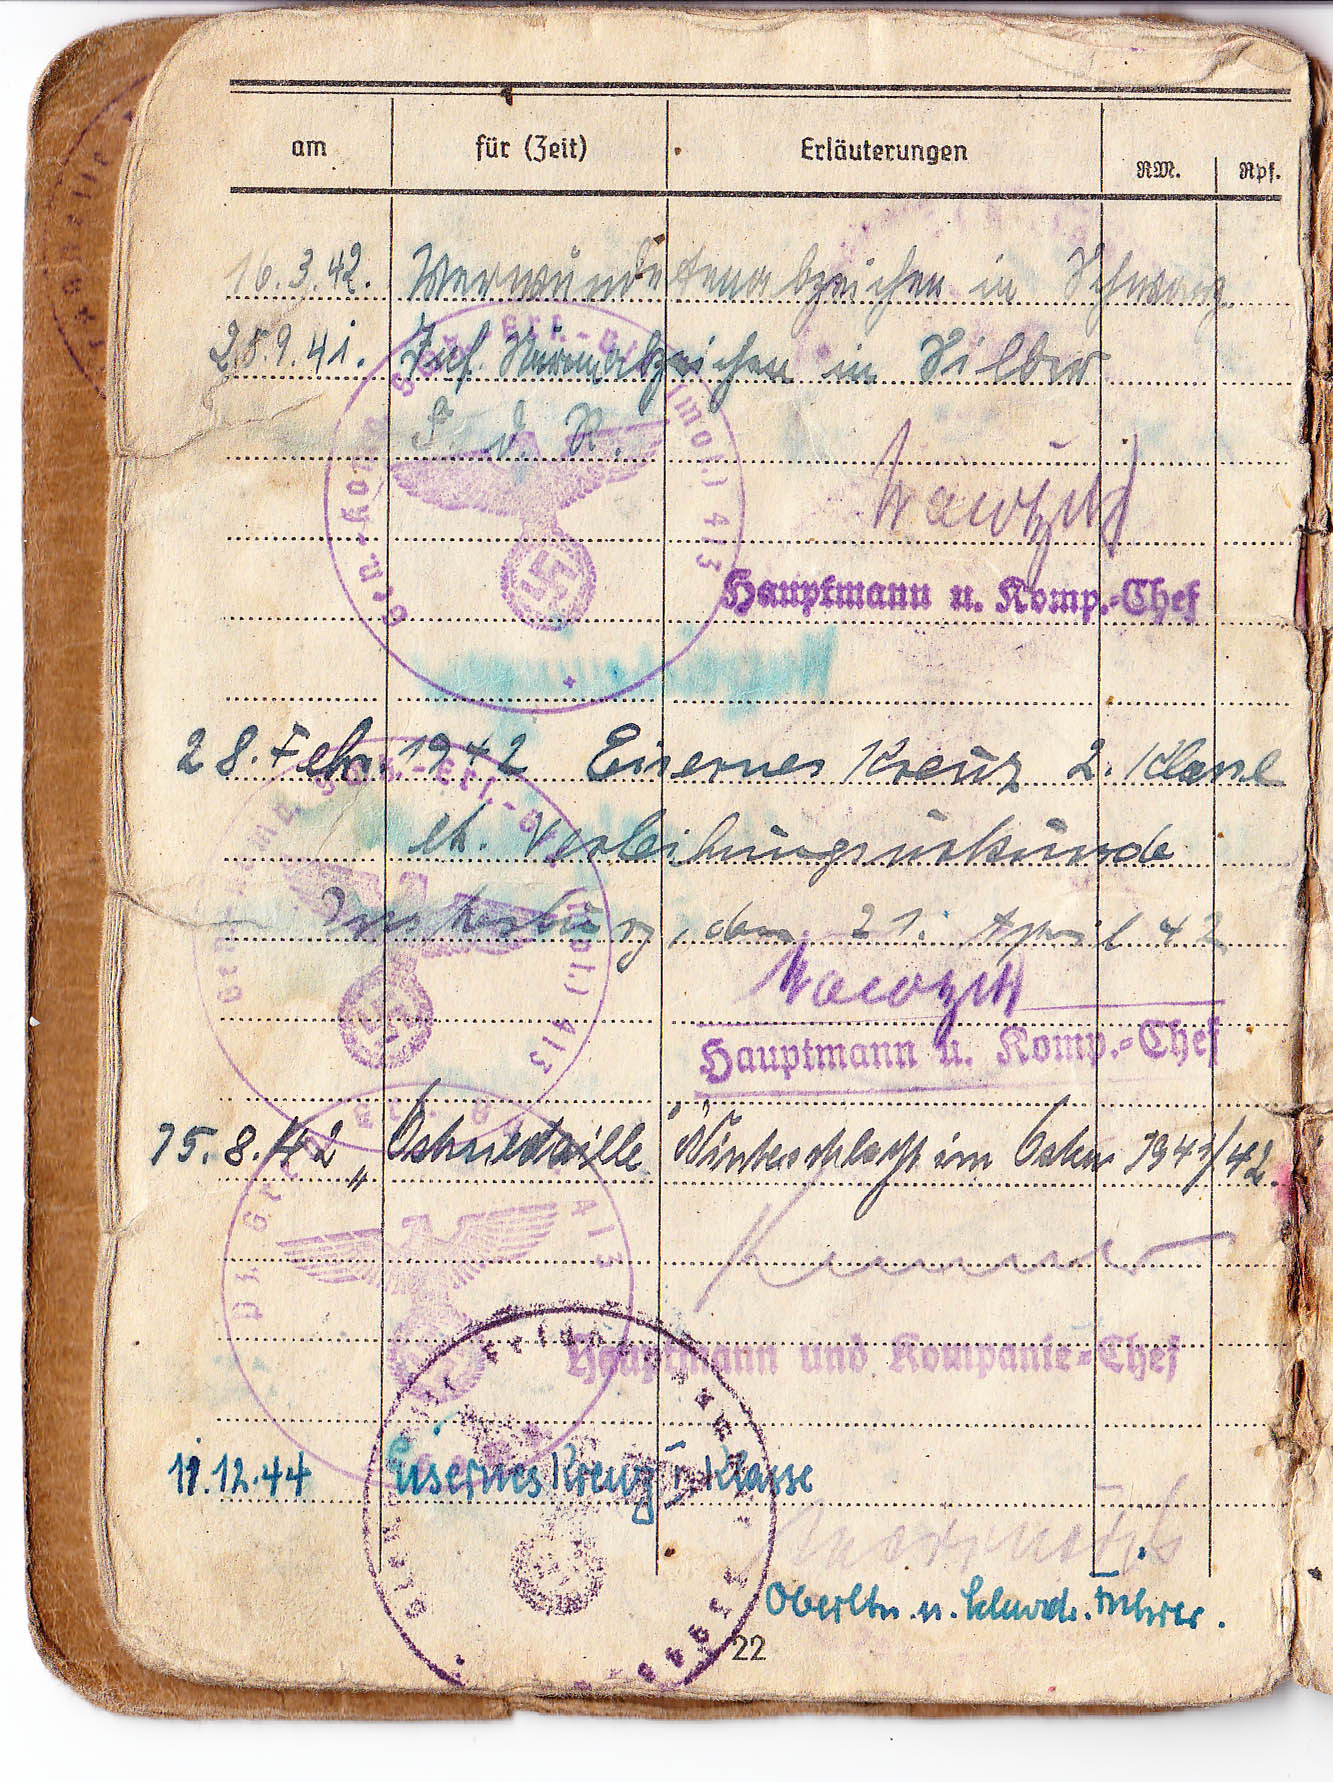 am für (Zeit) Erläuterungen RM. Rpf.
16.3.42. Verwundetenabzeichen in Schwarz.
25.9.41. Inf. Sturmabzeichen in Silber
F. d. R.
Hauptmann u. Komp.-Chef
28. Febr. 1942 Eisernes Kreuz 2. Klasse
lt. Verleihungsurkunde
Insterburg, den 21. April 42
Hauptmann u. Komp.-Chef
15.8.42 „Ostmedaille "Winterschlacht im Osten 1941/42.
Hauptmann und Kompanie-Chef
11.12.44 Eisernes Kreuz I. Klasse
Oberltn. u. Schwdr. Führer.
22